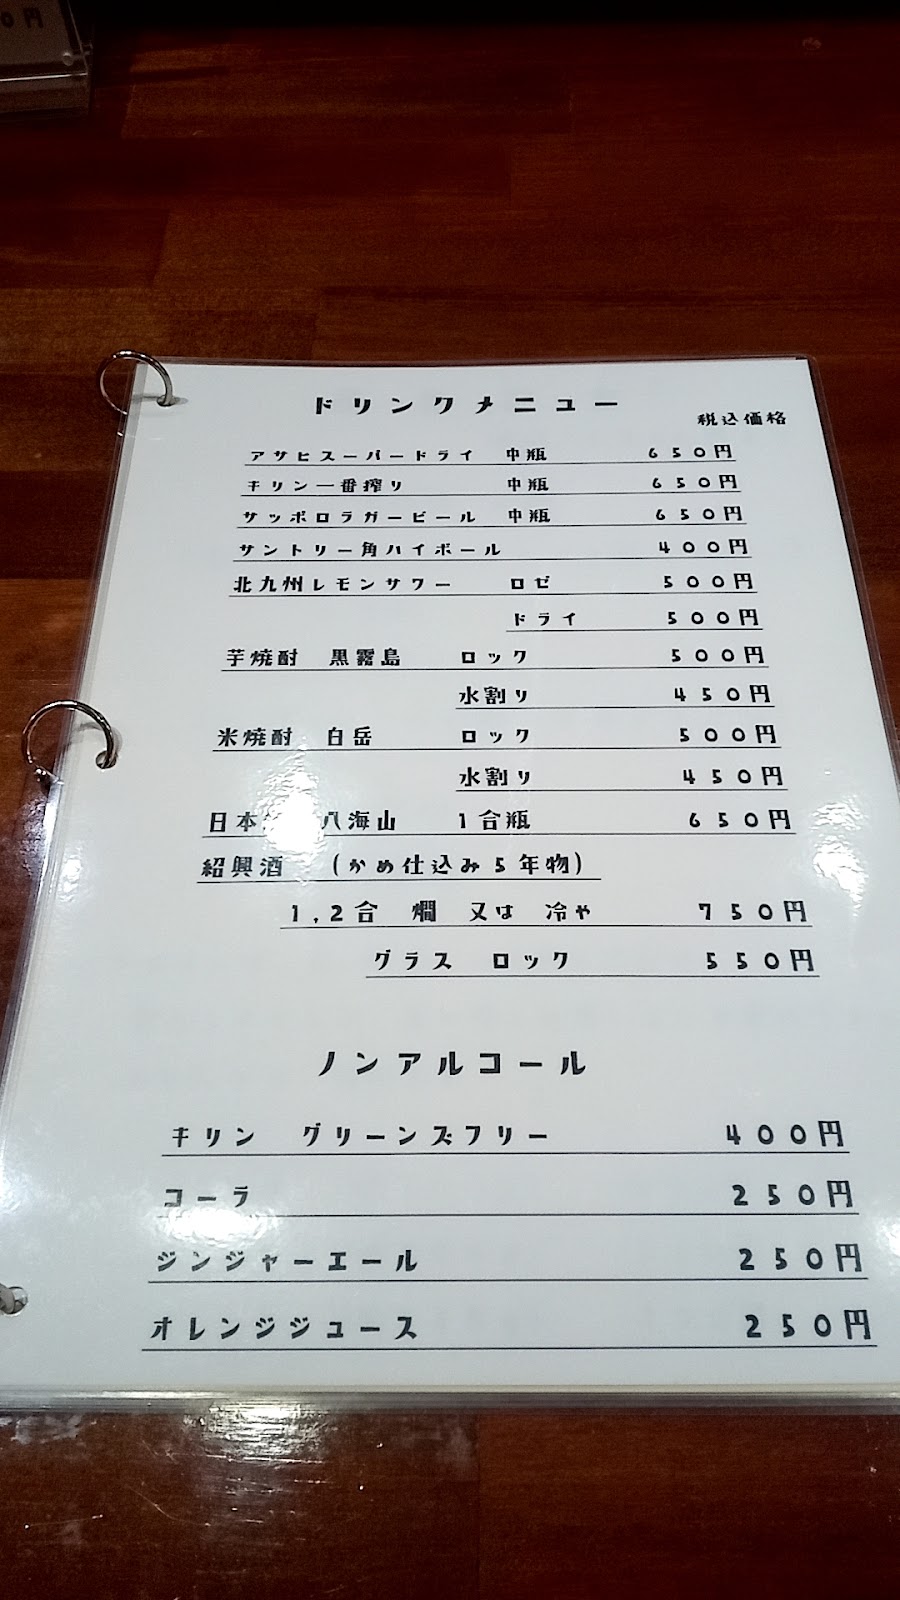 0円
ドリンクメニュー
税込価格
アサヒスーパードライ 中瓶 650円
キリン一番搾り 中瓶 650円
サッポロラガービール 中瓶 650円
サントリー角ハイボール 400円
北九州レモンサワー ロゼ 500円
ドライ 500円
芋焼酎 黒霧島 ロック 500円
水割り 450円
米焼酎 白岳 ロック 500円
水割り 450円
日本 八海山 1合瓶 650円
紹興酒 (かめ仕込み5年物)
1,2合 燗 又は 冷や 750円
グラス ロック 550円
ノンアルコール
キリン グリーンズフリー 400円
コーラ 250円
ジンジャーエール 250円
オレンジジュース 250円